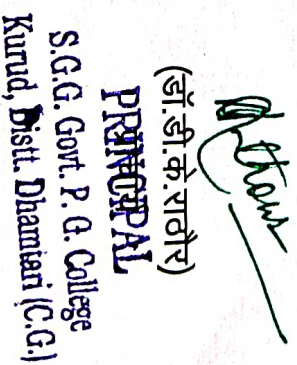 (डॉ.डी.के.राठौर)
PRINCIPAL
S.G.G. Govt. P. G. College
Kurud, Distt. Dhamtari (C.G.)